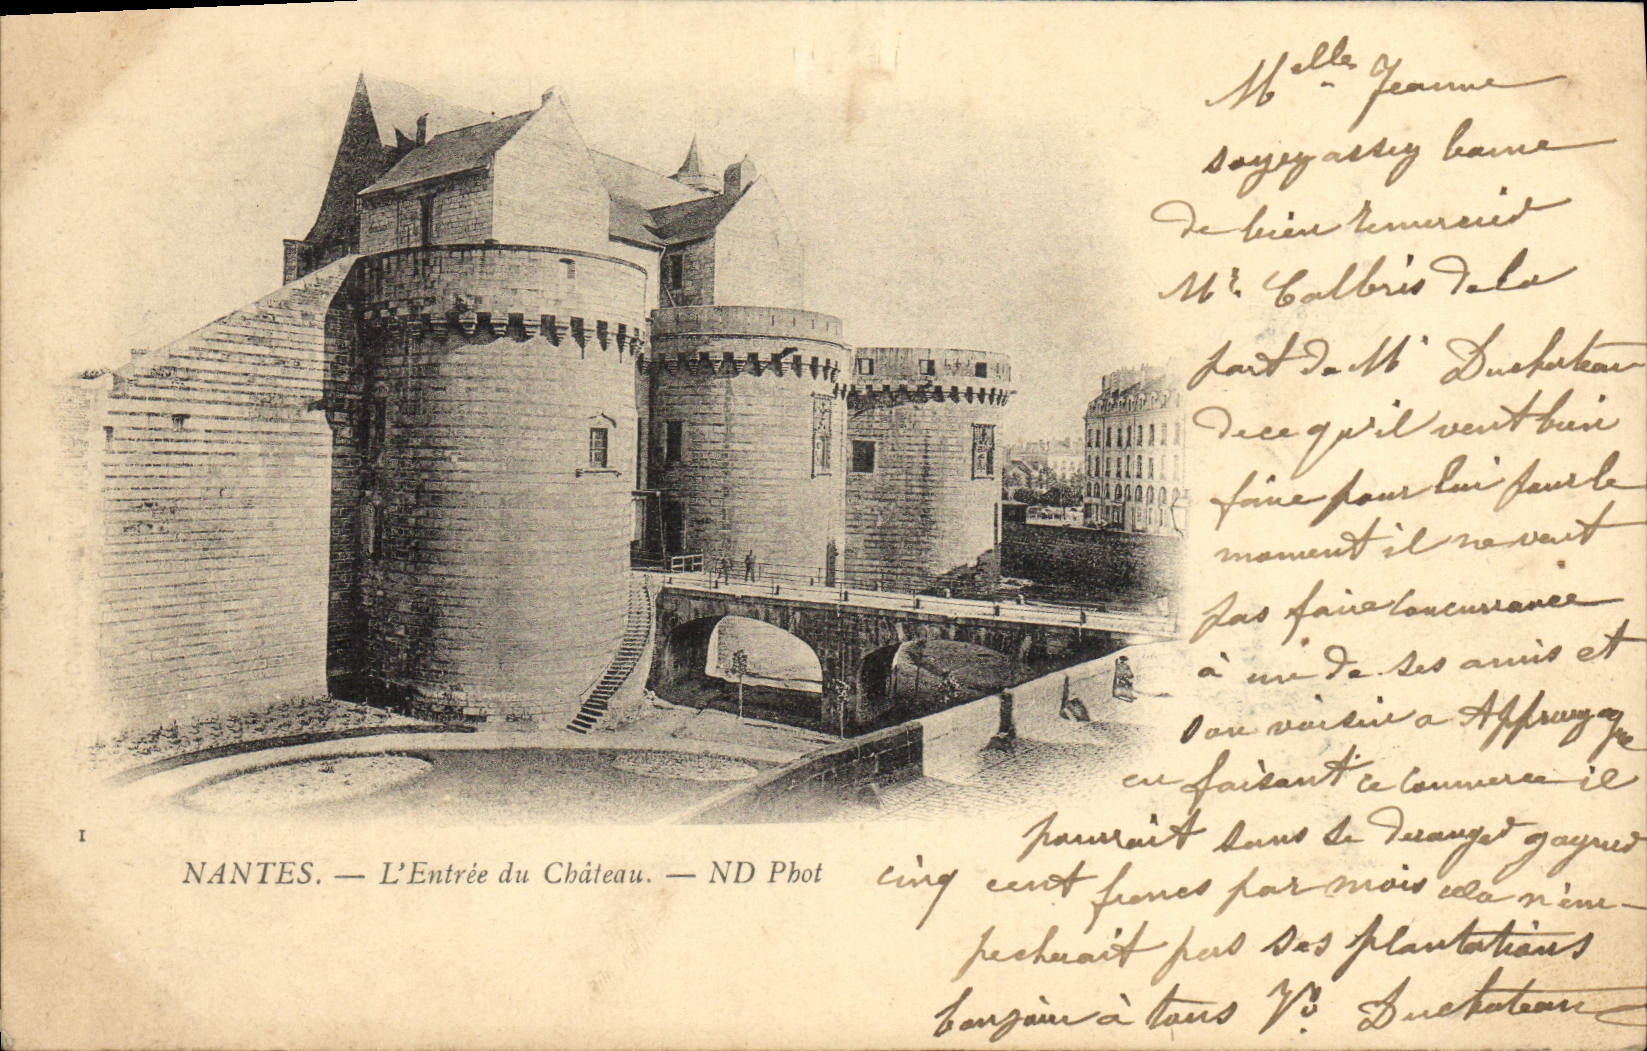 Melle Jeanne
soyez assez bonne
de bien remercier
Mr. Calbris de la
part de Mr Duchateau
de ce qu'il veut bien
faire pour lui pour le
moment il ne veut
pas faire concurrance
à un de ses amis et
son voisin a
en faisant ce commerce il
pourrait sans se deranger gagner
cinq cent francs par mois cela n'em-
pecherait pas ses plantations
bonjour à tous Vr. Duchateau
1
NANTES. — L'Entrée du Château. — ND Phot